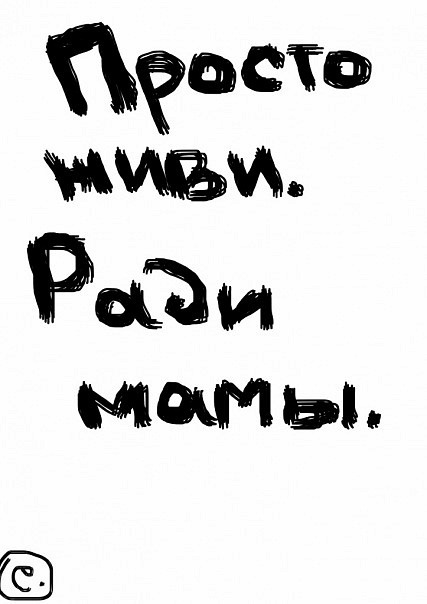 Просто
живи.
Ради
мамы.
С.